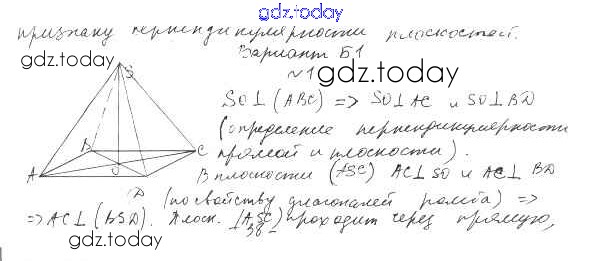 gdz.today
признаку перпендикулярности плоскостей.
Вариант Б1
gdz.today
№1
gdz.today
S
SO⊥(ABC) => SO⊥AC и SO⊥BD
(определение перпендикулярности
прямой и плоскости).
B
C
A
O
D
В плоскости (ASC) AC⊥SO и AC⊥BD
(по свойству диагоналей ромба) =>
=> AC⊥(BSD). Плоск. (ASC) проходит через прямую,
gdz.today
- 38 -
gdz.today